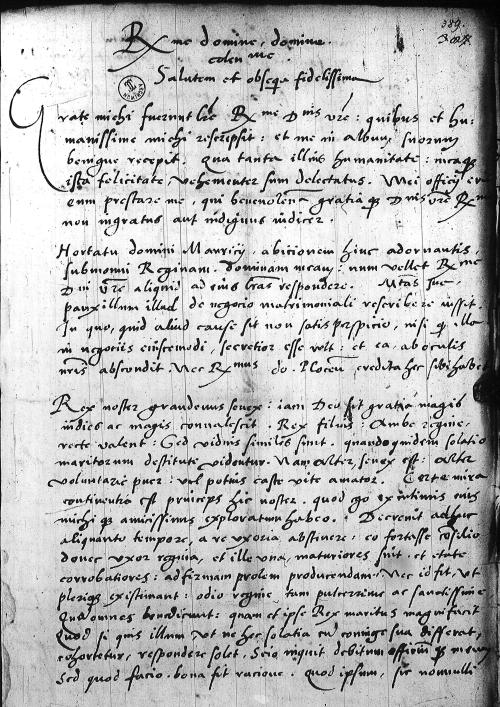 389.
Rme domine, domine
colenme
Salutem et obsequia fidelissima
Grate michi fuerunt lre Rme Dnis vre: quibus et hu-
manissime michi rescripsit: et me in album suorum
benigne recepit. Qua tanta illius humanitate: meaqz
ista felicitate, vehementer sum delectatus. Mei officij erit
eum prestare me, qui benevolentia gratiaqz Dnis vre Rme
non ingratus aut indignus iudicer.
Hortatu domini Mauricij abitionem hinc adornantis,
submonui Reginam dominam meam: num vellet Rme
Dni vre aliquid ad eius lras respondere. Mtas sue
pauxillum illud de negocio matrimoniali rescribere iussit.
In quo, quid aliud cause sit non satis perspicio, nisi qz illa
in negociis eiuscemodi, secretior esse volt: et ea ab oculis
nris abscondit. Nec Rmus do. Plocen credita hec sibi habet
Rex noster grandevus senex: iam Dei fit gratia magis
indies ac magis convalescit. Rex filius: Ambe regine:
recte valent. Sed viduis similes sunt. quandoquidem solatio
maritorum destitute videntur. Nam alter, senex est: alter
voluntarie puer: vel potius caste vite amator. Certe mira
continentia est princeps hic noster. quod ego ex intimis eius
michi qz amicissimis exploratum habeo. Decrevit adhuc
aliquanto tempore, a re uxoria abstinere: eo fortasse consilio
donec uxor regina, et ille una, maturiores sint et etate
corroboratiores: ad firmam prolem producendam. Nec id fit, ut
pleriqz existimant: odio regine, tam pulcerrime ac sanctissime
Qua omnes benedicunt: quam et ipse Rex maritus magnifacit
Quod si quis illum ut ne hec solatia cum coniuge sua differat,
cohortetur, respondere solet. Scio inquit debitum officiumqz meum
Sed quod facio. bona fit racione. quod ipsum, sic nonnulli